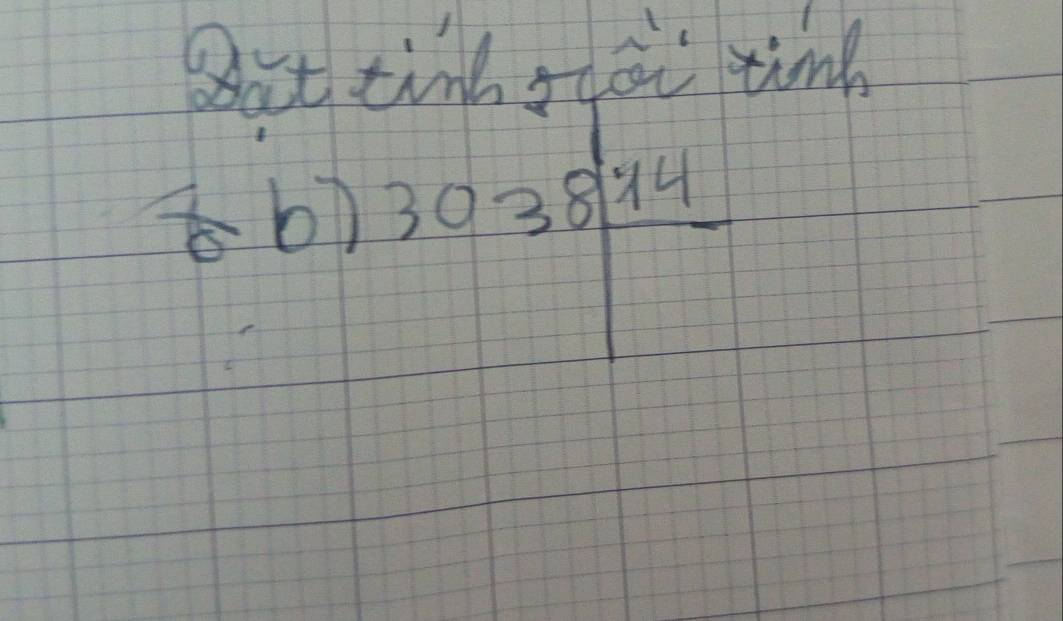 Đặt tính rồi tính
b) 3038 14